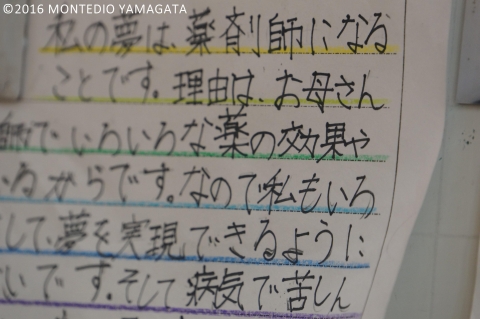 ©2016 MONTEDIO YAMAGATA
私の夢は、薬剤師になる
ことです。理由は、お母さん
師で、いろいろな薬の効果や
いるからです。なので私もいろ
して、夢を実現できるように
いです。そして病気で苦しん